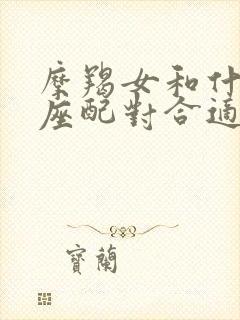 摩羯女和什
座配對合適
寶蘭